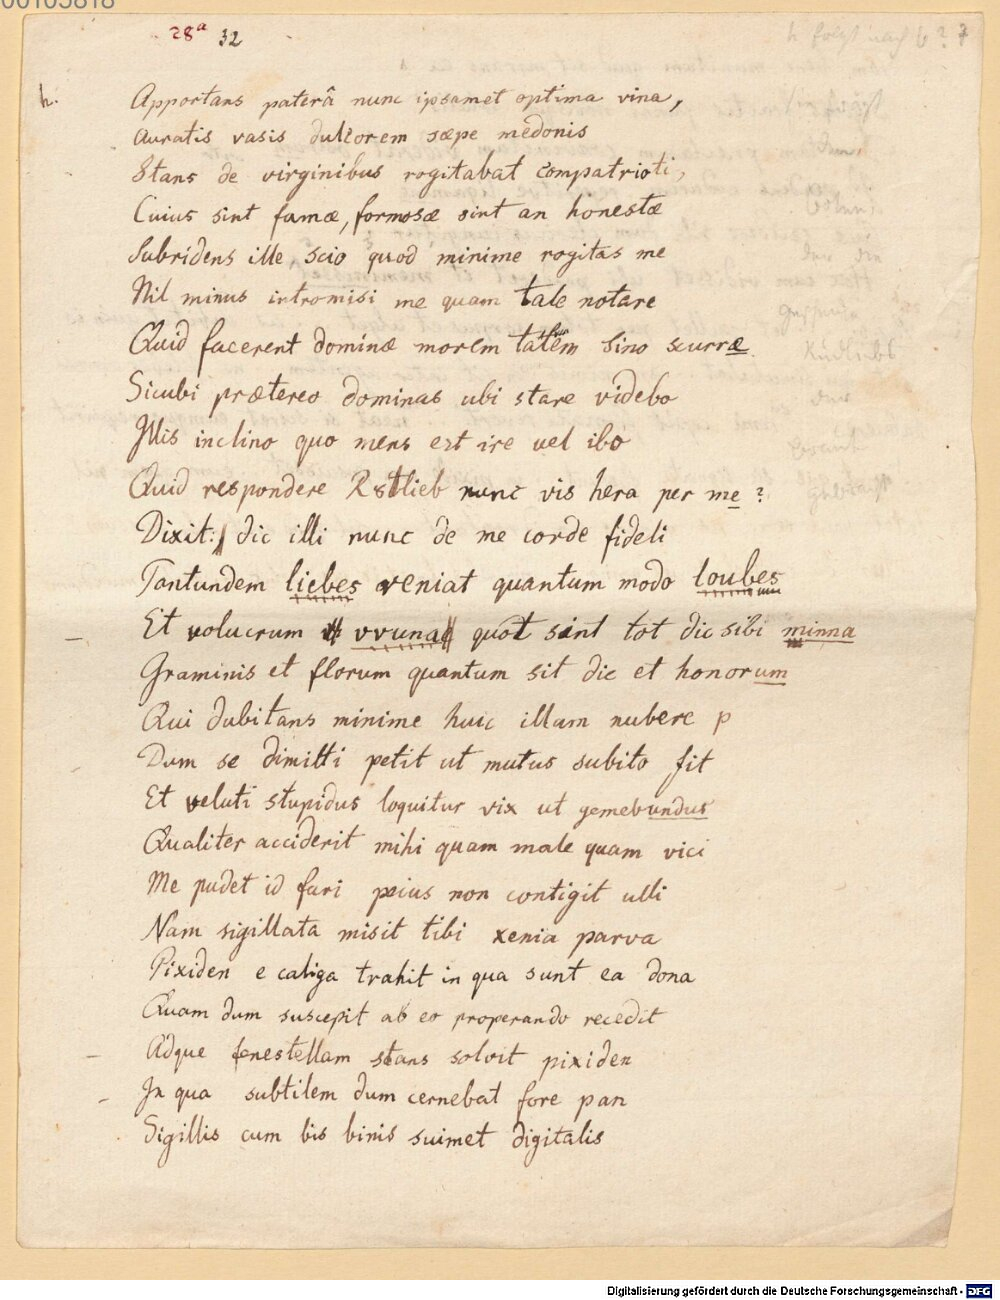 00103818
28ª 32
h folgt nach b ? 7
h.
Apportans paterâ nunc ipsamet optima vina,
Auratis vasis dulcorem sæpe medonis
Stans de virginibus rogitabat compatrioti,
Cuius sint famæ, formosæ sint an honestæ
Subridens ille scio quod minime rogitas me
Nil minus intromisi me quam tale notare
Quid facerent dominæ morem talem sino scurræ
Sicubi prætereo dominas ubi stare videbo
Illis inclino quo mens est ire vel ibo
Quid respondere Rotlieb nunc vis hera per me ?
Dixit: dic illi nunc de me corde fideli
Tantundem liebes veniat quantum modo loubes
Et volucrum vvuna quot sint tot dic sibi minna
Graminis et florum quantum sit dic et honorum
Qui dubitans minime huic illam nubere p
Dum se dimitti petit ut mutus subito fit
Et veluti stupidus loquitur vix ut gemebundus
Qualiter acciderit mihi quam male quam vici
Me pudet id fari peius non contigit ulli
Nam sigillata misit tibi xenia parva
Pixiden e caliga trahit in qua sunt ea dona
Quam dum suscepit ab eo properando recedit
Adque fenestellam stans solvit pixiden
In qua subtilem dum cernebat fore pan
Sigillis cum bis binis suimet digitalis
Digitalisierung gefördert durch die Deutsche Forschungsgemeinschaft - DFG